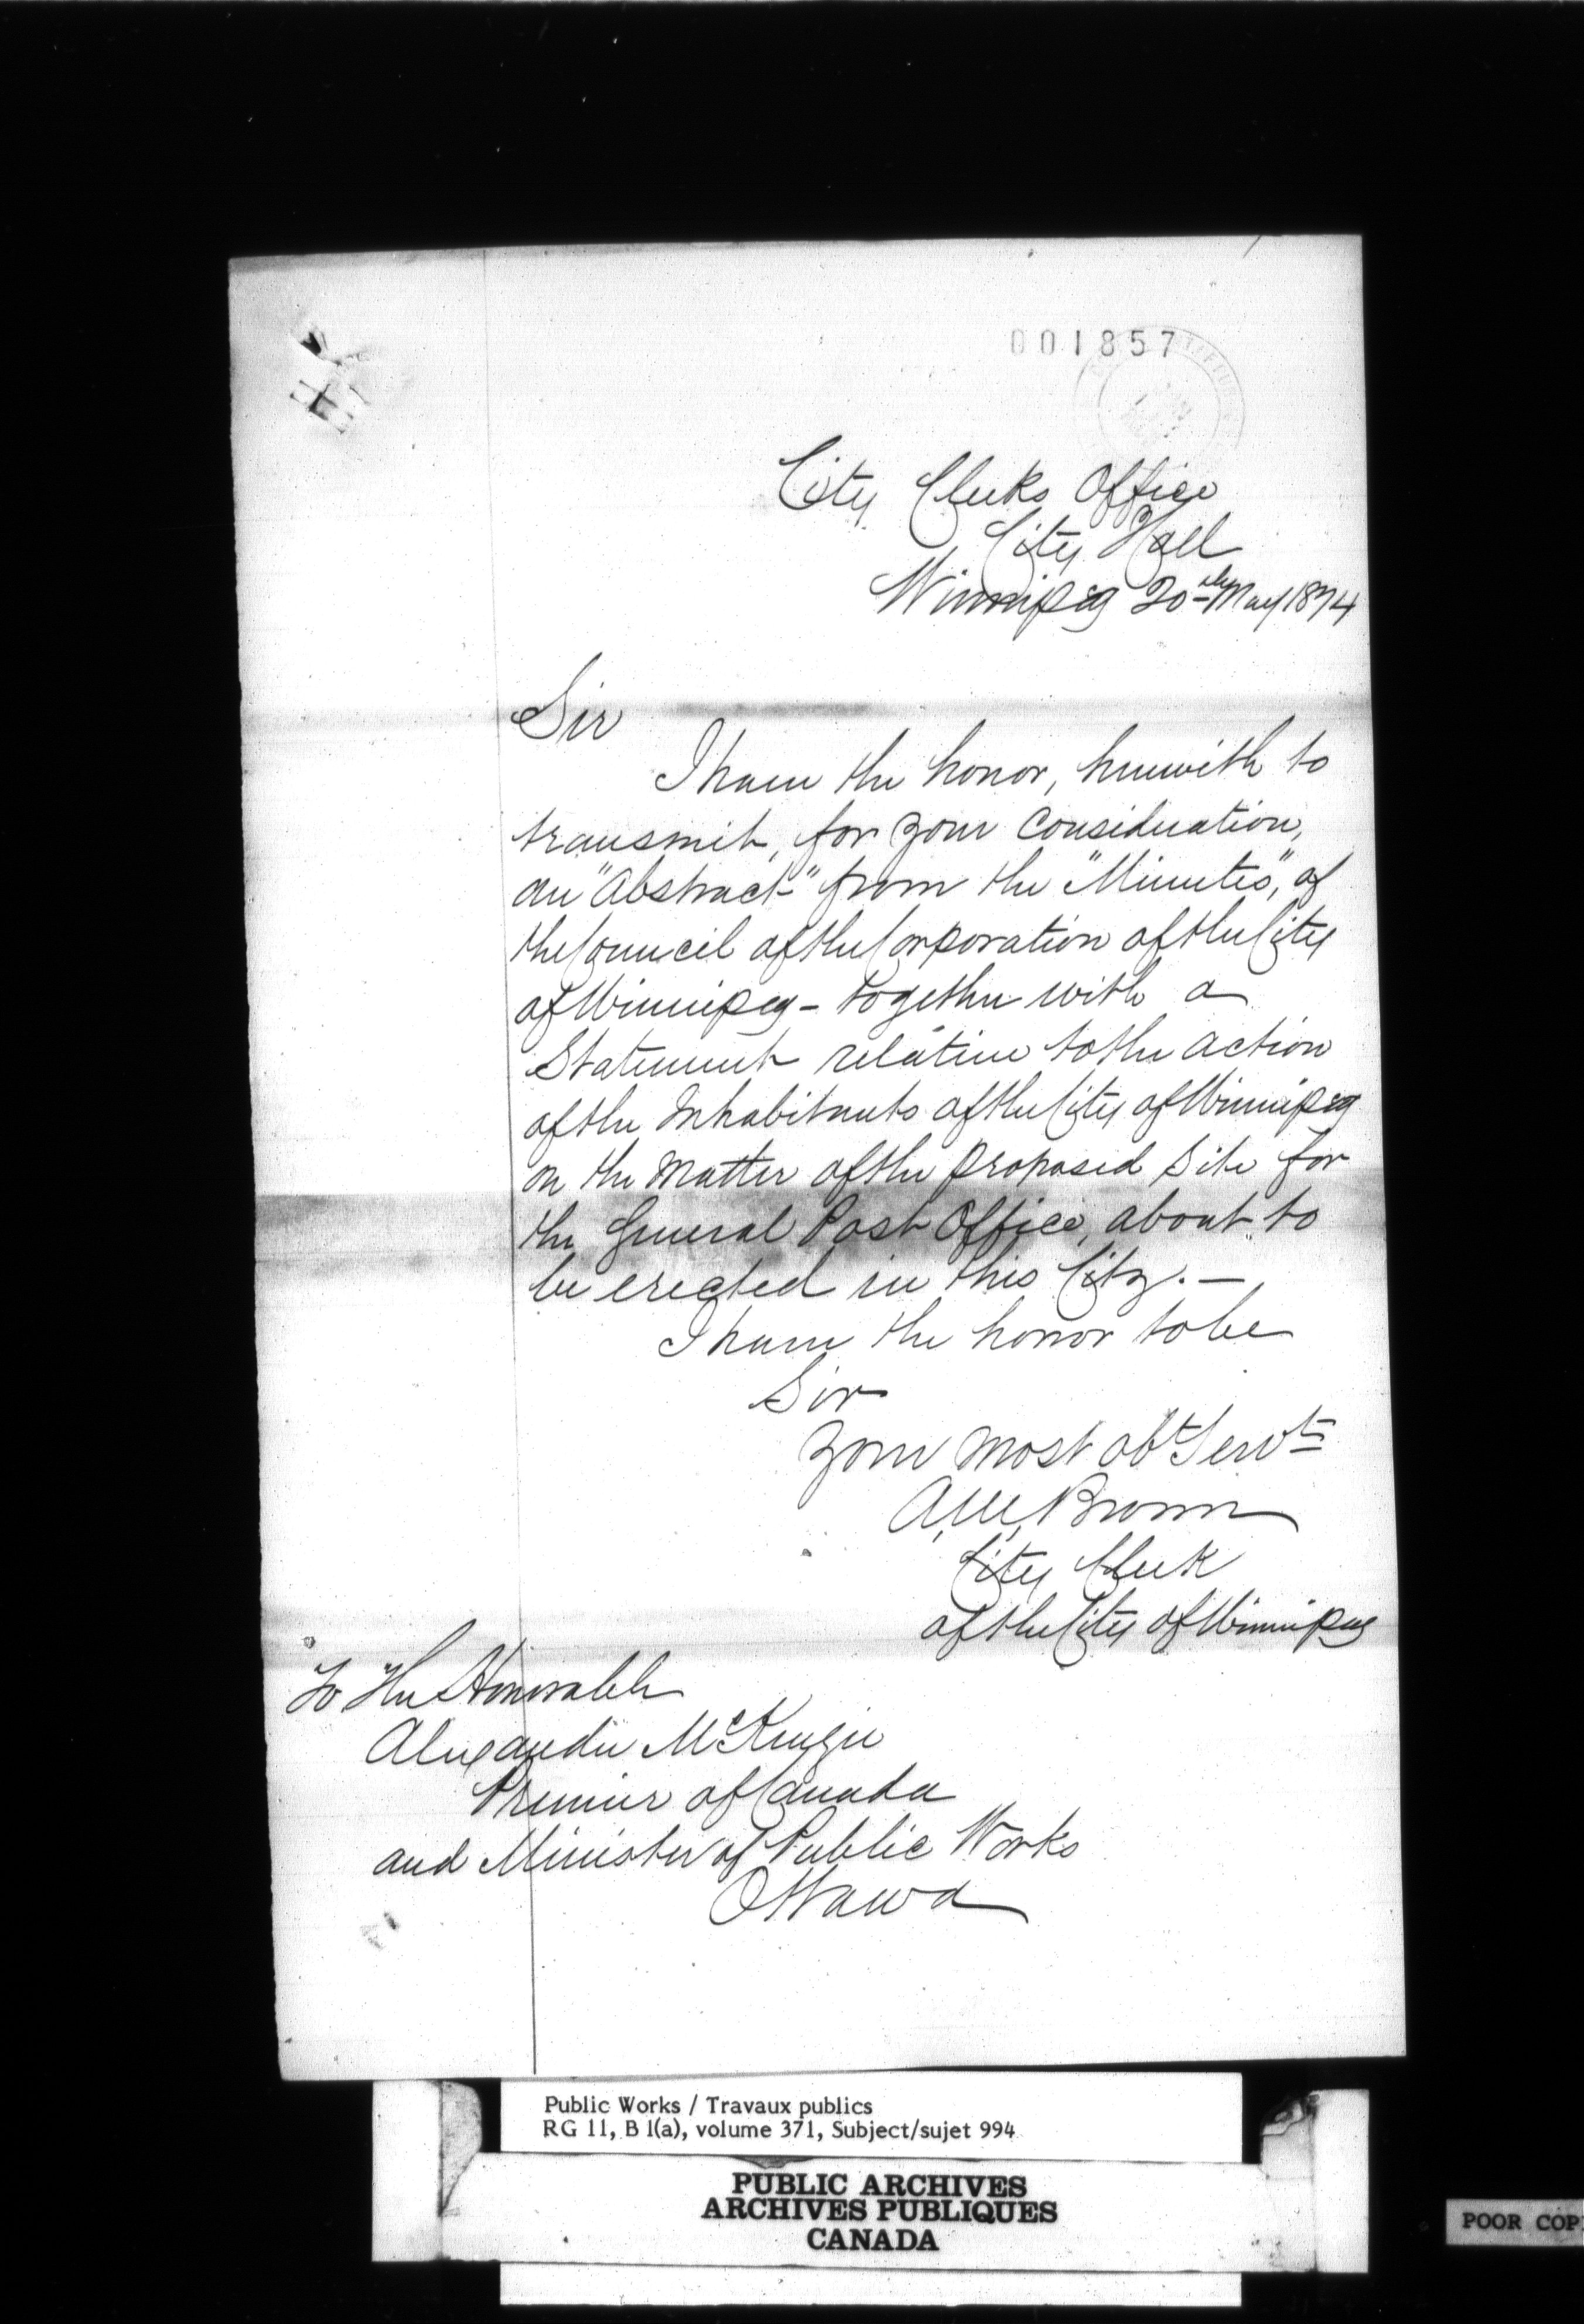 001857
City Clerks Office
City Hall
Winnipeg 20th May 1874
Sir
I have the honor, herewith to
transmit, for your Consideration,
an "Abstract" from the "Minutes", of
the Council of the Corporation of the City
of Winnipeg - together with a
Statement relative to the action
of the Inhabitants of the City of Winnipeg
on the Matter of the proposed Site for
the General Post Office, about to
be erected in this City. —
I have the honor to be
Sir
Your most obt Servt
A.M. Brown
City Clerk
of the City of Winnipeg
To The Honorable
Alexander McKenzie
Premier of Canada
and Minister of Public Works
Ottawa
Public Works / Travaux publics
RG 11, B 1(a), volume 371, Subject/sujet 994
PUBLIC ARCHIVES
ARCHIVES PUBLIQUES
CANADA
POOR COP